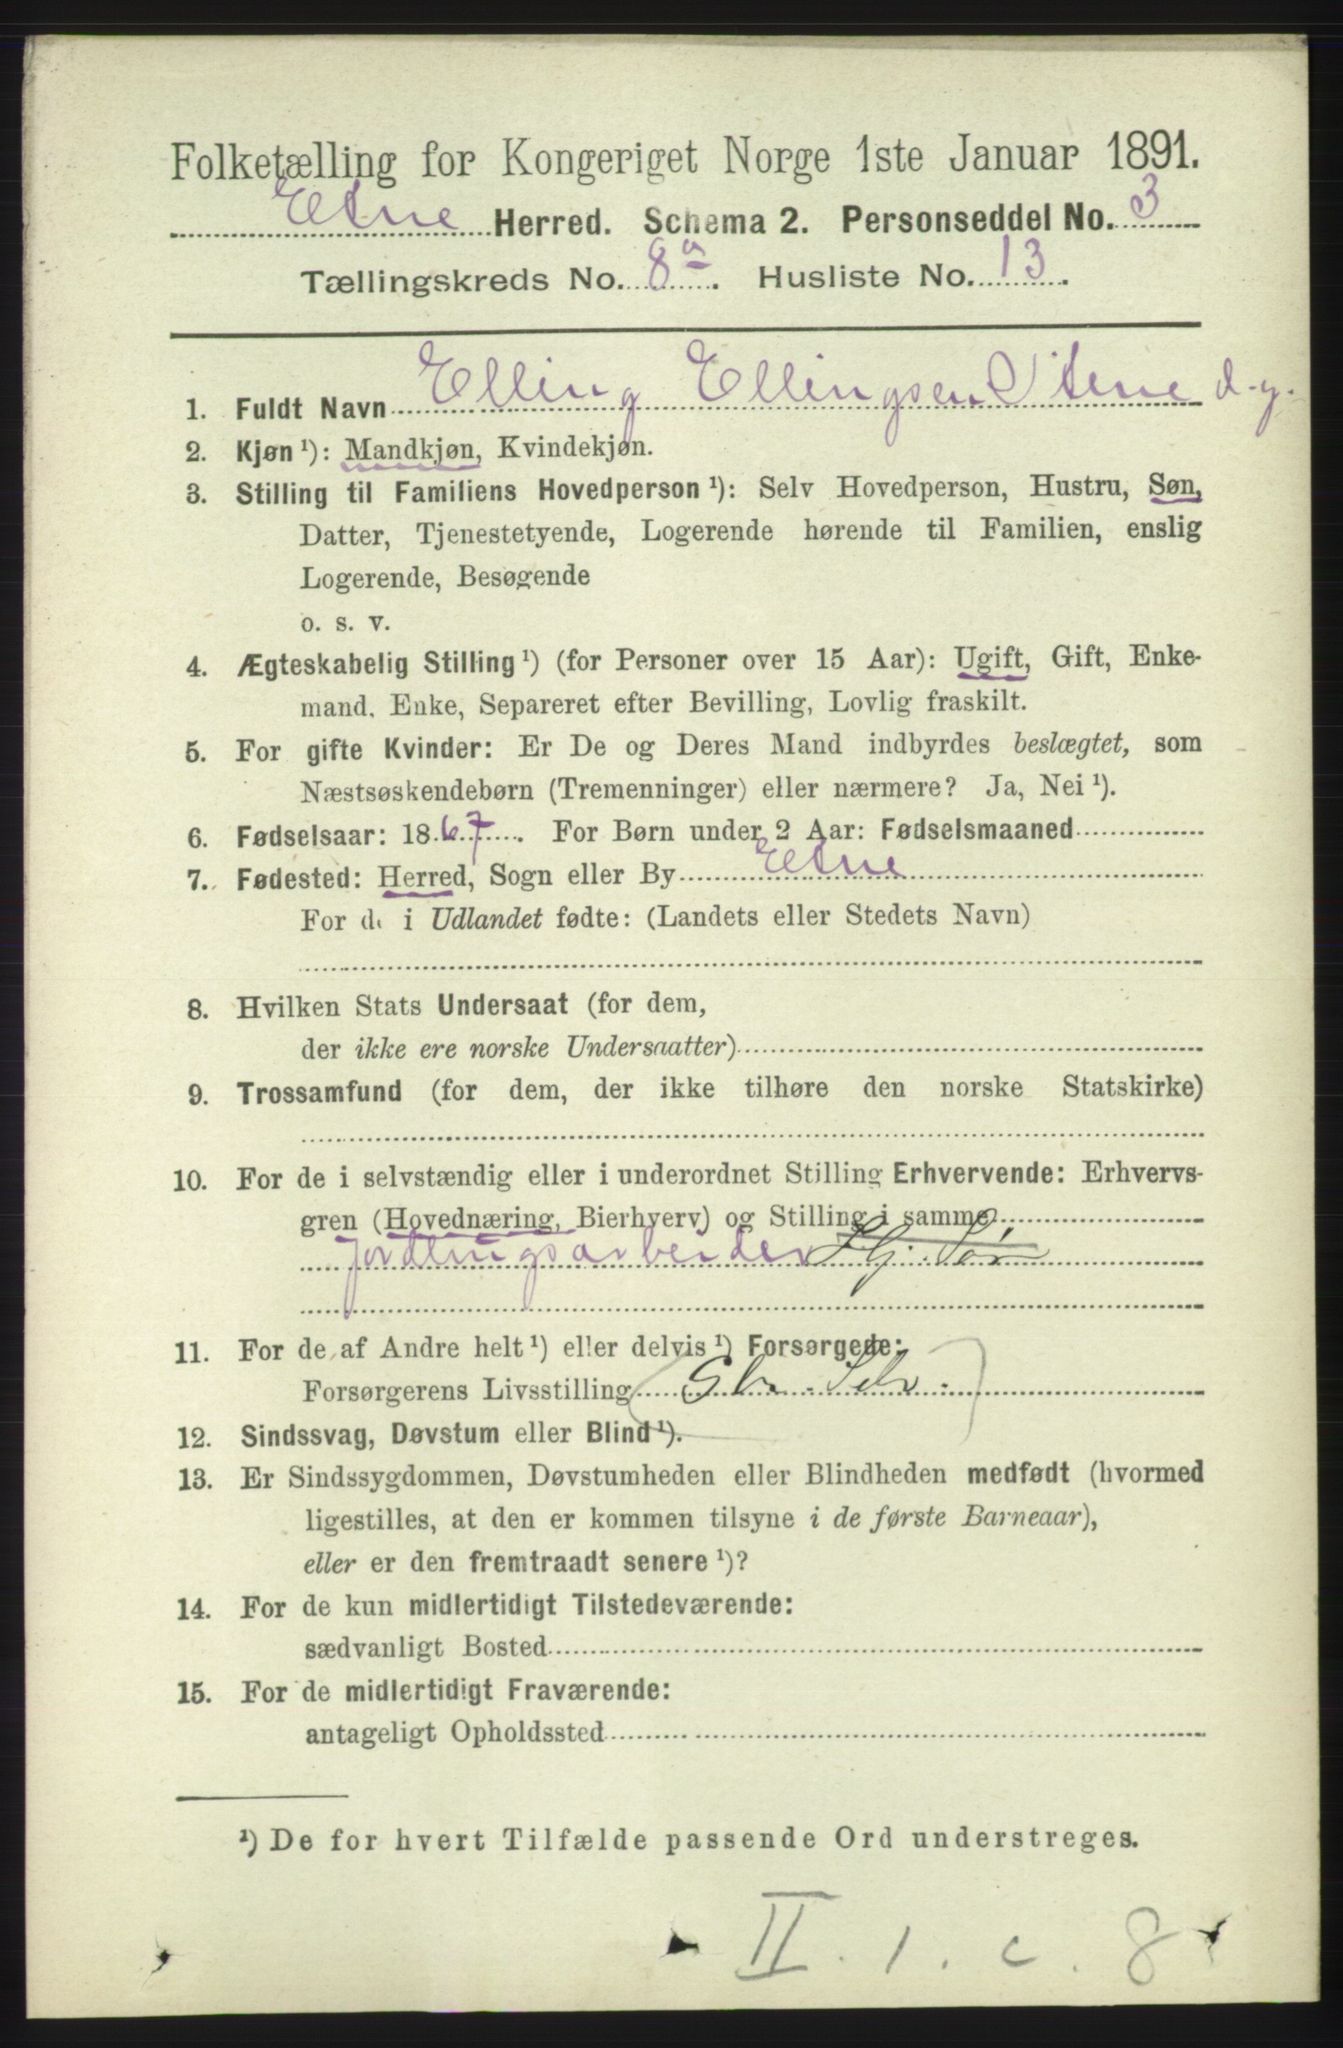 Folketælling for Kongeriget Norge 1ste Januar 1891.
Etne Herred. Schema 2. Personseddel No. 3
Tællingskreds No. 8a. Husliste No. 13.
1. Fuldt Navn Elling Ellingsen Stene d.y.
2. Kjøn ¹): Mandkjøn, Kvindekjøn.
3. Stilling til Familiens Hovedperson ¹): Selv Hovedperson, Hustru, Søn,
Datter, Tjenestetyende, Logerende hørende til Familien, enslig
Logerende, Besøgende
o. s. v.
4. Ægteskabelig Stilling ¹) (for Personer over 15 Aar): Ugift, Gift, Enke-
mand, Enke, Separeret efter Bevilling, Lovlig fraskilt.
5. For gifte Kvinder: Er De og Deres Mand indbyrdes beslægtet, som
Næstsøskendebørn (Tremenninger) eller nærmere? Ja, Nei ¹).
6. Fødselsaar: 1867. For Børn under 2 Aar: Fødselsmaaned
7. Fødested: Herred, Sogn eller By Etne
For de i Udlandet fødte: (Landets eller Stedets Navn)
8. Hvilken Stats Undersaat (for dem,
der ikke ere norske Undersaatter)
9. Trossamfund (for dem, der ikke tilhøre den norske Statskirke)
10. For de i selvstændig eller i underordnet Stilling Erhvervende: Erhvervs-
gren (Hovednæring, Bierhverv) og Stilling i samme
Jordbrugsarbeider
11. For de af Andre helt ¹) eller delvis ¹) Forsørgede:
Forsørgerens Livsstilling Gbr. Selv.
12. Sindssvag, Døvstum eller Blind ¹).
13. Er Sindssygdommen, Døvstumheden eller Blindheden medfødt (hvormed
ligestilles, at den er kommen tilsyne i de første Barneaar),
eller er den fremtraadt senere ¹)?
14. For de kun midlertidigt Tilstedeværende:
sædvanligt Bosted
15. For de midlertidigt Fraværende:
antageligt Opholdssted
¹) De for hvert Tilfælde passende Ord understreges.
II. 1. c. 8